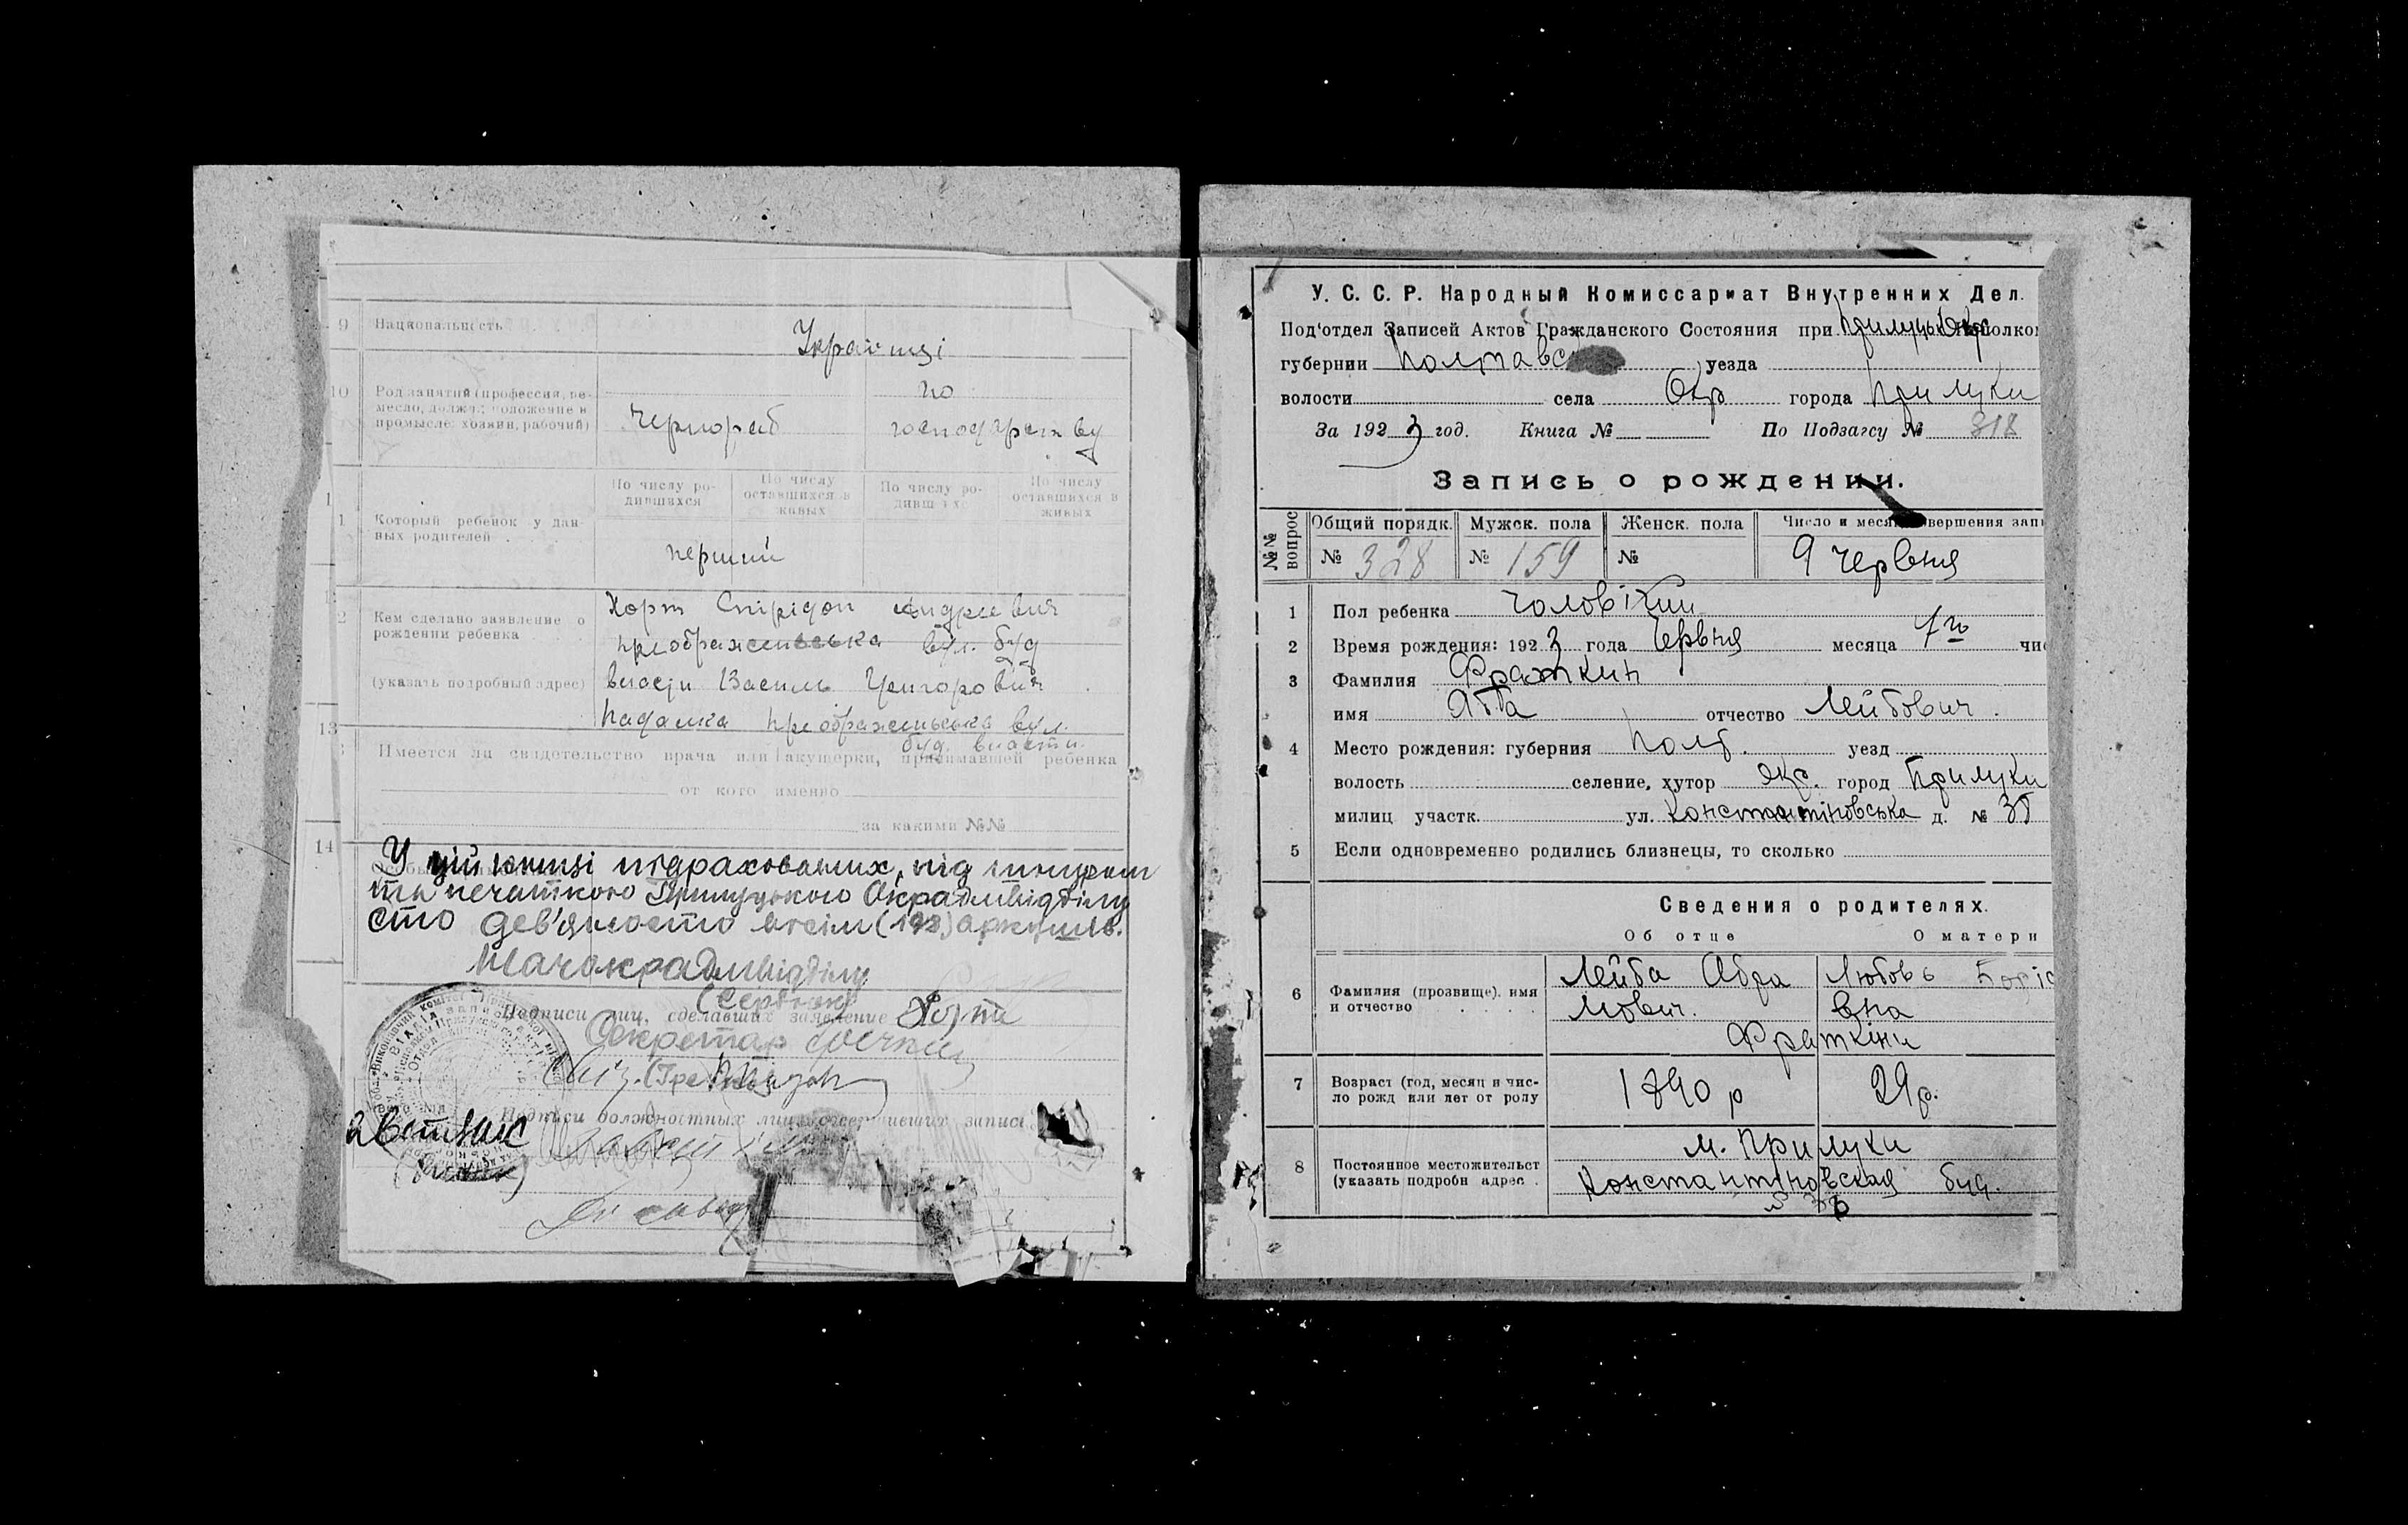 9 Национальность
Українці
10 Род занятий (профессия, ре-
месло, должн.; положение в
промысле: хозяин, рабочий)
Чернораб
по
господарству
По числу ро-
дившихся
По числу
оставшихся в
живых
По числу ро-
дивш
По числу
оставшихся в
живых
Который ребенок у дан-
ных родителей
перший
Кем сделано заявление о
рождении ребенка
(указать подробный адрес)
Хорт Спірідон Андреевич
преображенська вул. буд
Василь Григорович
преображенська вул.
буд.
13
Имеется ли свидетельство врача или акушерки, принимавшей ребенка
от кого именно
за какими №№
14
У цій книзі підрахованих, під шнуром
та печаткою Прилуцького Окрадмвідділу
сто дев'яносто вісім (198) аркушів.
Начокрадмвідділу
Подписи лиц, сделавших заявление Хорт
Секретар
Подписи должностных лиц, совершивших запись
У. С. С. Р. Народный Комиссариат Внутренних Дел.
Под'отдел Записей Актов Гражданского Состояния при
губернии Полтавс уезда
волости села Окр города Прилуки
За 1923 год. Книга № По Подзагсу № 318
Запись о рождении.
№№ вопрос
Общий порядк. Мужск. пола Женск. пола Число и меся вершения зап
№ 328 № 159 № 9 червня
1 Пол ребенка чоловікий
2 Время рождения: 1923 года Червня месяца 7го чи
3 Фамилия Фраткин
имя Абба отчество Лейбович.
4 Место рождения: губерния Полт. уезд
волость селение, хутор окр. город Прилуки
милиц участк. ул. Константіновська д. №
5 Если одновременно родились близнецы, то сколько
Сведения о родителях.
Об отце О матери
6 Фамилия (прозвище), имя
и отчество
Лейба Абра
мович.
Любовь Боріс
вна
Фраткіни
7 Возраст (год, месяц и чис-
ло рожд или лет от роду
1890 р 29 р.
8 Постоянное местожительст
(указать подробн адрес
м. Прилуки
Константіновская буд.